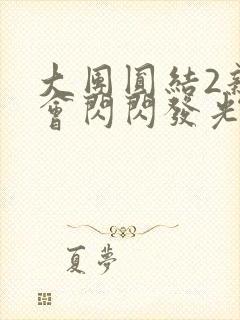 大團圓結2
會閃閃發光
夏夢